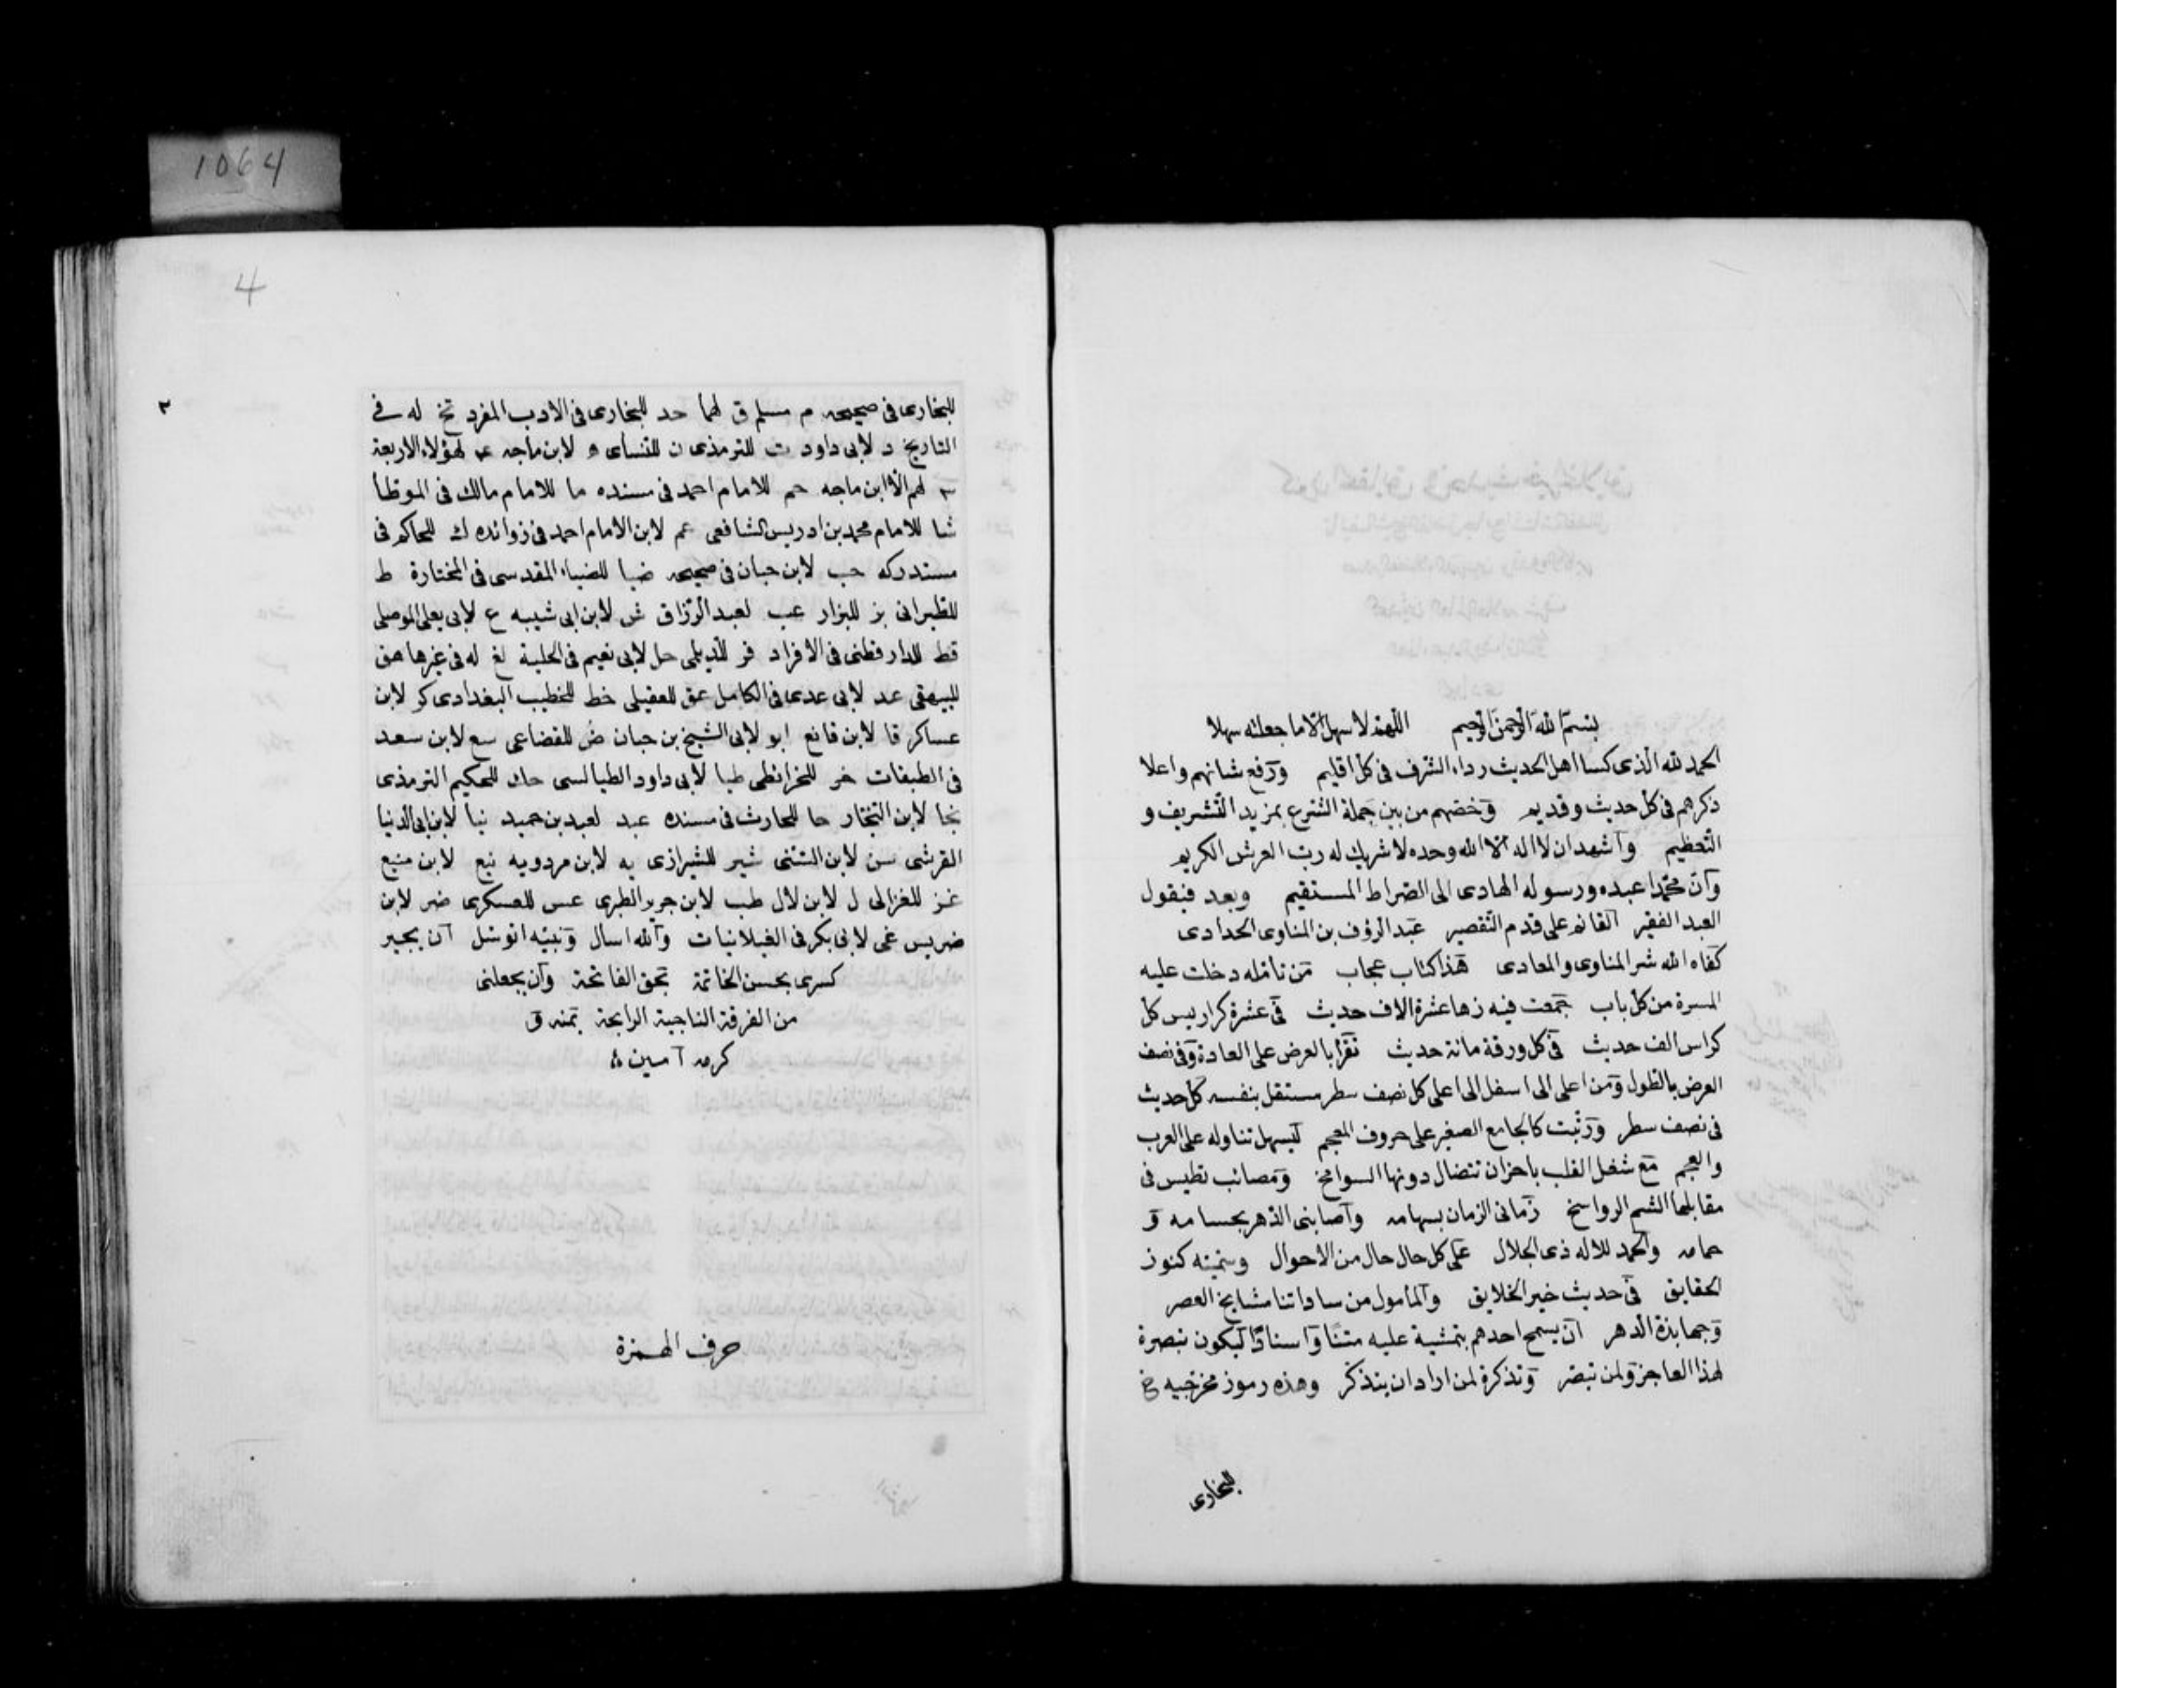 بسم الله الرحمن الرحيم اللهم لا سهل الا ما جعلته سهلا
الحمد لله الذى كسا اهل الحديث رداء الشرف فى كل اقليم ورفع شانهم واعلا
ذكرهم فى كل حديث وقديم وخصهم من بين حملة الشرع بمزيد التشريف و
التعظيم واشهد ان لا اله الا الله وحده لا شريك له رب العرش الكريم
وان محمدا عبده ورسوله الهادى الى الصراط المستقيم وبعد فيقول
العبد الفقير القائم على قدم التقصير عبد الرؤف بن المناوى الحدادى
كفاه الله شر المناوى والمعادى هذا كتاب عجاب من تامله دخلت عليه
المسرة من كل باب جمعت فيه زها عشرة الاف حديث فى عشرة كراريس كل
كراس الف حديث فى كل ورقة مائة حديث تقرأ بالعرض على العادة وفى نصف
العرض بالطول ومن اعلى الى اسفل الى اعلى كل نصف سطر مستقل بنفسه كل حديث
فى نصف سطر ورتبت كالجامع الصغير على حروف المعجم ليسهل تناوله على العرب
والعجم مع شغل القلب باحزان تتضال دونها السوامخ ومصائب تطيس فى
مقابلها الشم الرواسخ زمانى الزمان بسهامه واصابنى الدهر بحسامه و
حمامه والحمد للاله ذى الجلال على كل حال حال من الاحوال وسميته كنوز
الحقايق فى حديث خير الخلايق والمأمول من ساداتنا مشايخ العصر
وجهابذة الدهر ان يسمح احدهم بتمشية عليه متنا واسنادا ليكون تبصرة
لهذا العاجز ولمن تبصر وتذكرة لمن اراد ان يتذكر وهذه رموز مخرجيه خ
للبخارى
1064
4
٣
للبخارى فى صحيحه م مسلم ق لهما خد للبخارى فى الادب المفرد تخ له فى
التاريخ د لابى داود ت للترمذى ن للنساى ه لابن ماجه ٤ لهؤلاء الاربعة
٣ لهم الا ابن ماجه حم للامام احمد فى مسنده ما للامام مالك فى الموطأ
شا للامام محمد بن ادريس الشافعى عم لابن الامام احمد فى زوائده ك للحاكم فى
مستدركه حب لابن حبان فى صحيحه ضيا للضياء المقدسى فى المختارة ط
للطبرانى بز للبزار عب لعبد الرزاق ش لابن ابى شيبه ع لابى يعلى الموصلى
قط للدارقطنى فى الافراد فر للديلمى حل لابى نعيم فى الحلية لغ له فى غيرها هق
للبيهقى عد لابى عدى فى الكامل عق للعقيلى خط للخطيب البغدادى كر لابن
عساكر قا لابن قانع ابو لابى الشيخ بن حبان ض للقضاعى سع لابن سعد
فى الطبقات خر للخرائطى طيا لابى داود الطيالسى حك للحكيم الترمذى
نجا لابن النجار حا للحارث فى مسنده عبد لعبد بن حميد نيا لابن ابى الدنيا
القرشى سن لابن السنى شير للشيرازى يه لابن مردويه نيع لابن منيع
غز للغزالى ل لابن لال طب لابن جرير الطبرى عس للعسكرى ضر لابن
ضريس غى لابى بكر فى الغيلانيات والله اسال وبنبيه اتوسل ان يجبر
كسرى بحسن الخاتمة بحق الفاتحة وان يجعلنى
من الفرقة الناجية الرابحة بمنه و
كرمه آمين
حرف الهمزة